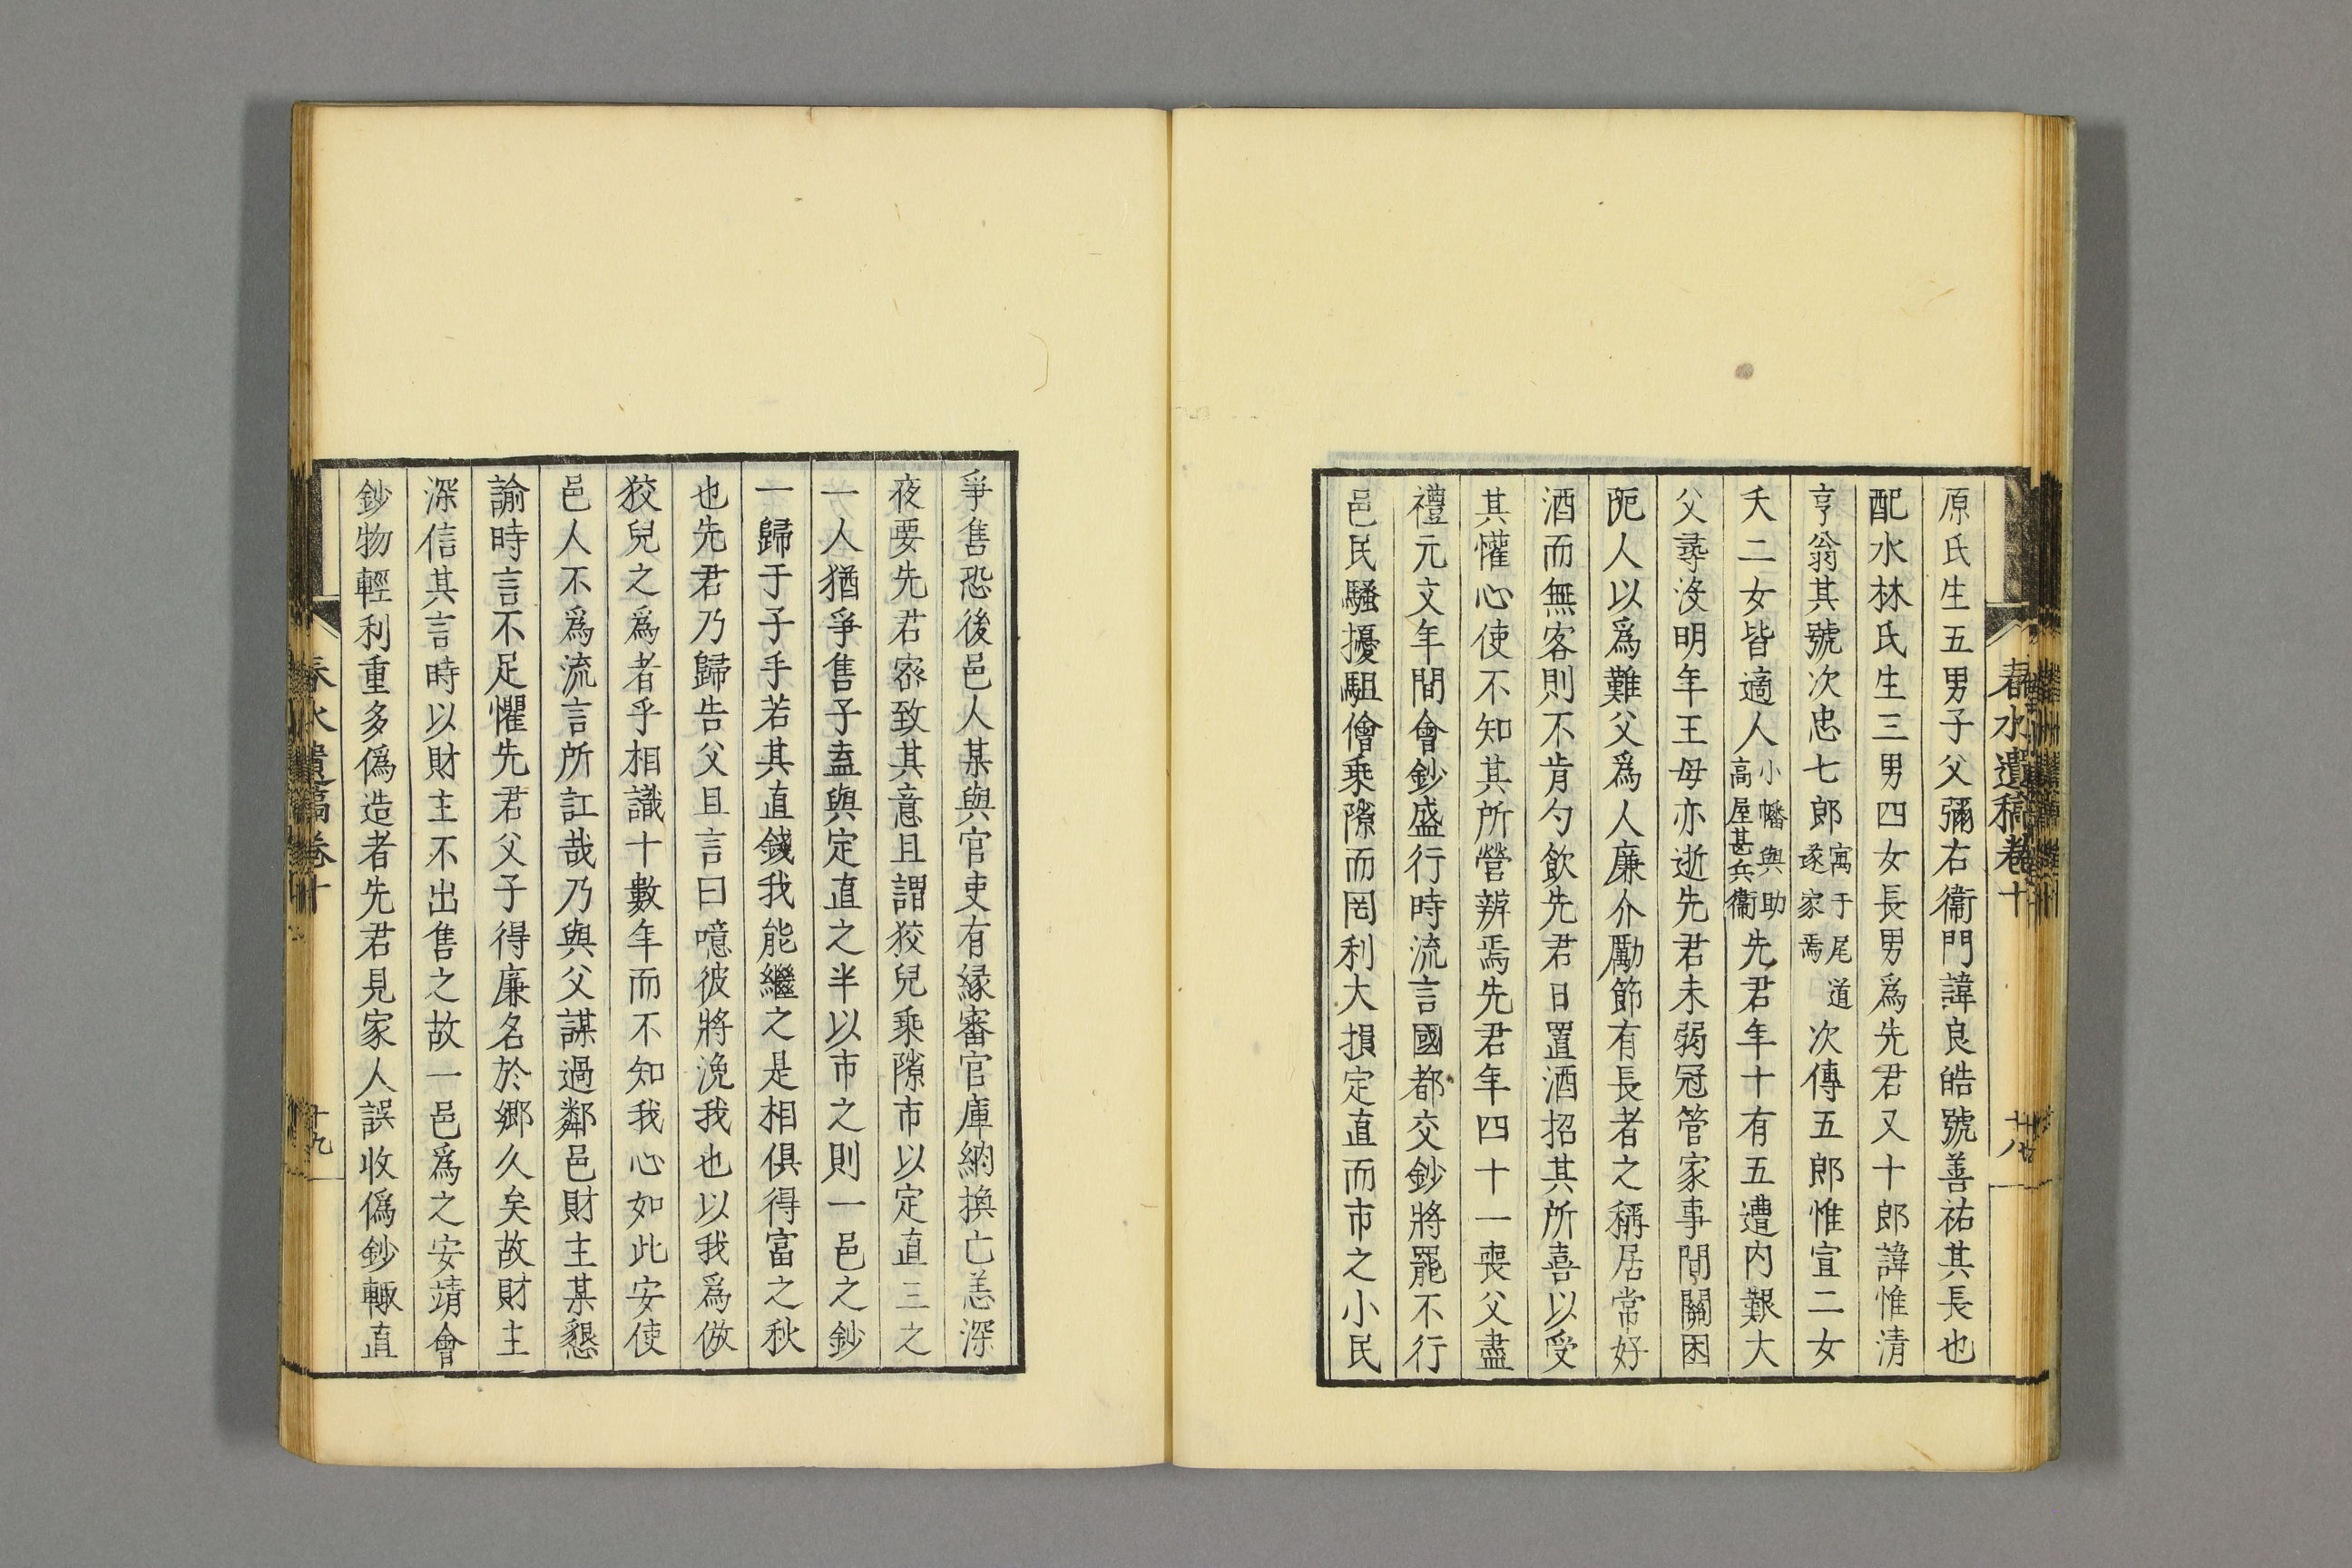 春水遺稿卷十
十八
原氏生五男子父彌右衞門諱良皓號善祐其長也
配水林氏生三男四女長男爲先君又十郎諱惟清
亨翁其號次忠七郎寓于尾道遂家焉次傳五郎惟宣二女
夭二女皆適人小幡與助高屋甚兵衞先君年十有五遭内艱大
父尋没明年王母亦逝先君未弱冠管家事間關困
阨人以爲難父爲人廉介勵節有長者之稱居常好
酒而無客則不肯勺飲先君日置酒招其所喜以受
其懽心使不知其所營辨焉先君年四十一喪父盡
禮元文年間會鈔盛行時流言國都交鈔將罷不行
邑民騷擾駔儈乘隙而罔利大損定直而市之小民
爭售恐後邑人某與官吏有縁審官庫納換亡恙深
夜要先君宻致其意且謂狡兒乘隙市以定直三之
一人猶爭售子盍與定直之半以市之則一邑之鈔
一歸于子手若其直錢我能繼之是相俱得富之秋
也先君乃歸告父且言曰噫彼將浼我也以我爲倣
狡兒之爲者乎相識十數年而不知我心如此安使
邑人不爲流言所訌哉乃與父謀過鄰邑財主某懇
諭時言不足懼先君父子得廉名於郷久矣故財主
深信其言時以財主不出售之故一邑爲之安靖會
鈔物輕利重多僞造者先君見家人誤收僞鈔輙直
春水遺稿卷十
十九